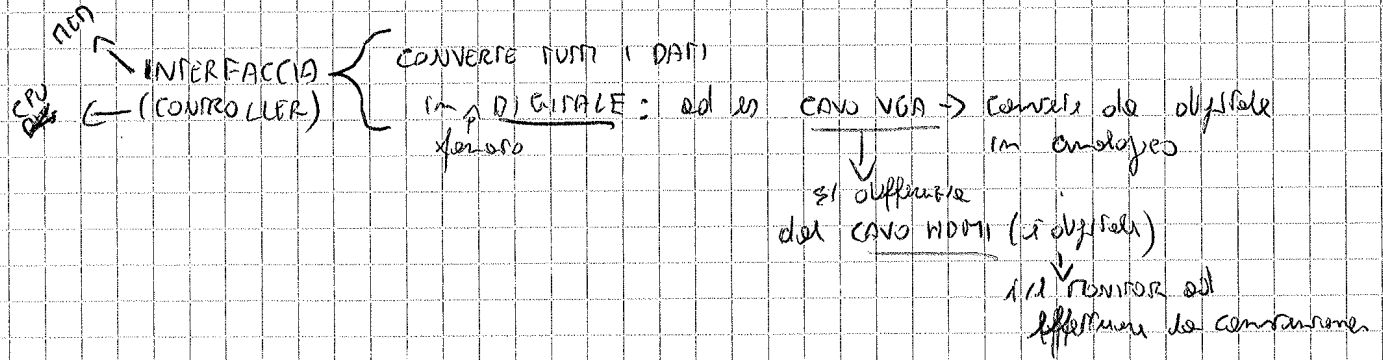 MEM
INTERFACCIA
(CONTROLLER)
CPU
CONVERTE TUTTI I DATI
in formato DIGITALE: ad es CAVO VGA → converte da digitale
in analogico
si differenzia
dal CAVO HDMI (è digitale)
è il MONITOR ad
effettuare la conversione